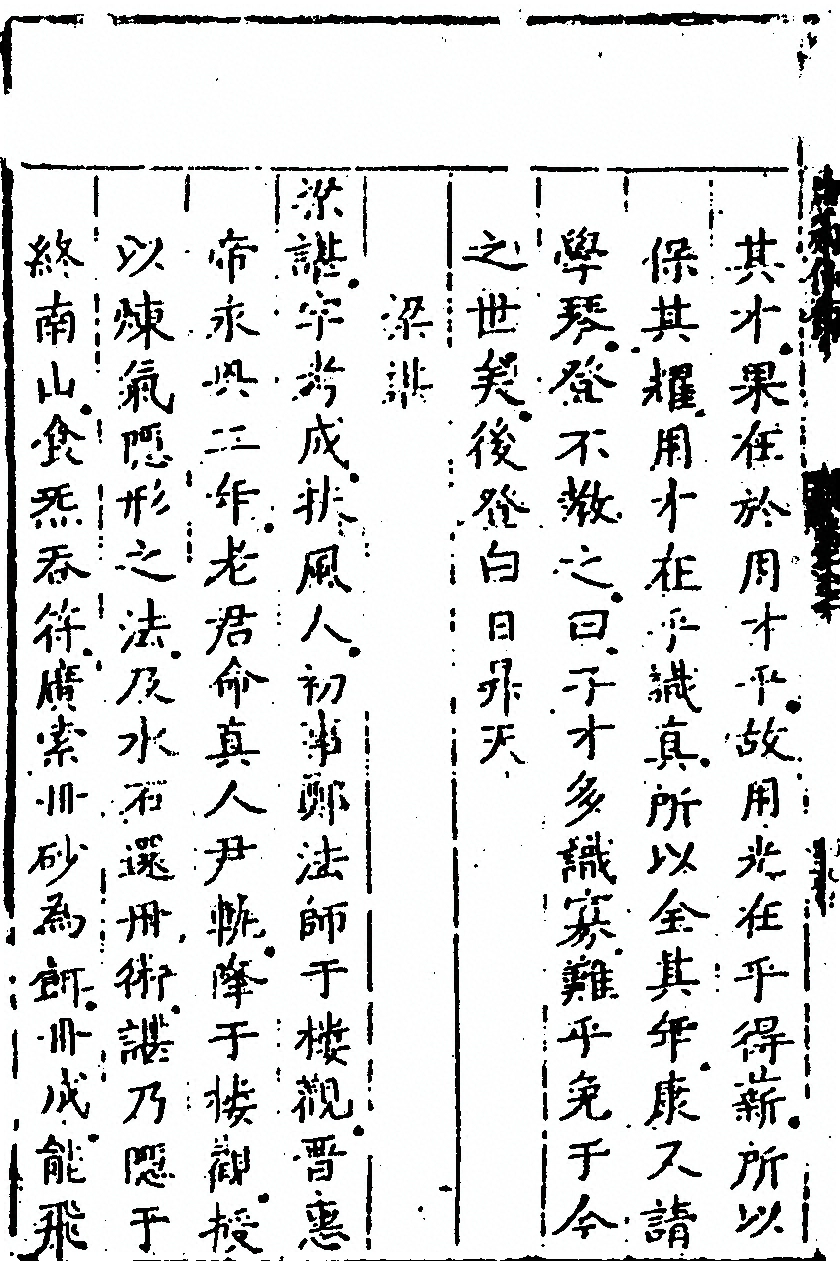 其才果在於用才乎故用光在乎得薪所以
保其耀用才在乎識真所以全其年康又請
學琴登不教之曰子才多識寡難乎免于今
之世矣後登白日昇天
梁諶
梁諶字考成扶風人初事鄭法師于楼觀晋惠
帝永興二年老君命真人尹軌降于楼觀授
以煉氣隱形之法及水石還丹術諶乃隱于
終南山食炁吞符廣索丹砂為餌丹成能飛